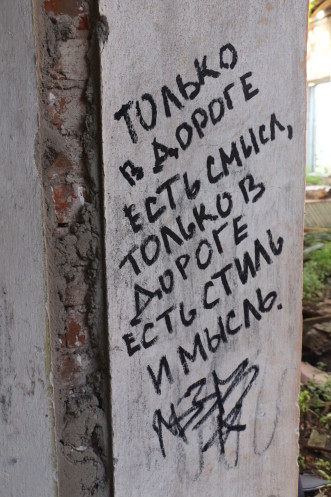 ТОЛЬКО
В ДОРОГЕ
ЕСТЬ СМЫСЛ,
ТОЛЬКО В
ДОРОГЕ
ЕСТЬ СТИЛЬ
И МЫСЛЬ.